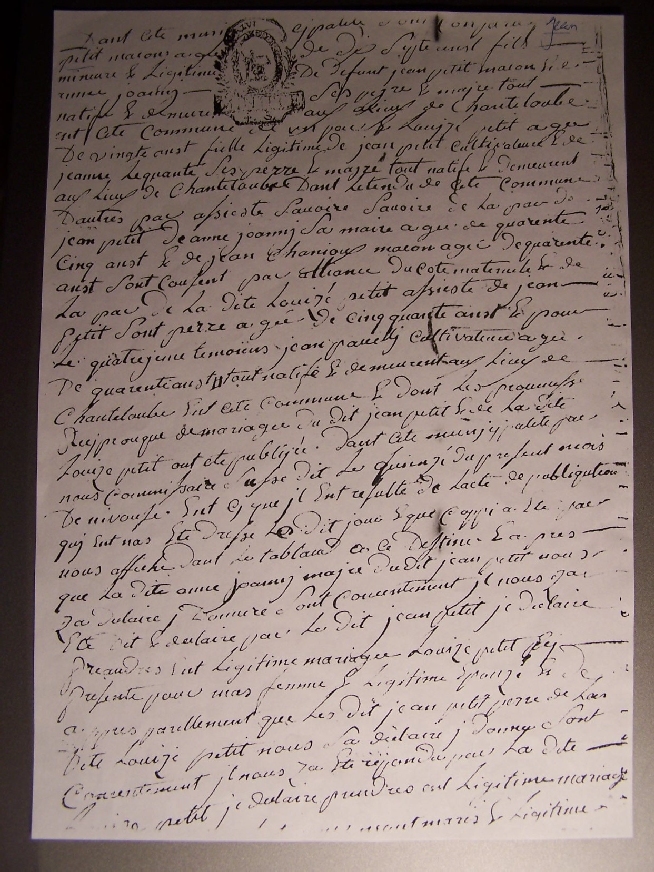 Jean
Dant Cete muni cipalite
petit masons agé de dé Septe anst fils
mineure & Legitime De Defunt jean petit mason & de
anne joanny Ses perre & maire tout
natife & demure aux Lieus de Chanteloube
ent Cete Commune de un par & Louize petit agee
De vingte anst fielle Légitime de jean petit Cultivateure & de
jeanne Lequante Ses perre & maire tout natife & demeurent
aux Lieus de Chanteloube Dant Letendu de Cete Commune
Dautres par assiesté Savoire Savoire de La par de
jean petit Deanne joannij Sa maire agee de quarente
Cinq anst & de jean Chanious mason agee dequarente
anst Sont Cousent par alliance Ducote maternele & de
La par de La Dite Louize petit assiesté de jean
petit Sont perre agée De Cinquante anst & pour
Le quatrieme temoiins jean pauelij Cultivateure agé
De quarente anst tout natife & demeurent aux Lieus de
Chanteloube Ent Cete Commune & Dont Les promess
Reciprouque demariagee du dit jean petit & de La dite
Louize petit ont été publijée Dant Cete munijypalite par
nous Commissaire Susse dit Le quinze du present mois
De nivouse Ent Ce que jl Ent resulte de Lacte de publiquation
quij Ent nas Ete Dresse Le dit joure & que Coppi a Ete par
nous affiché Dant Le tableaux a Ce Destine & apres
que La dite anne joannij maire Dudit jean petit nous
Ja declaire j Donnure Sont Consentement jl nous Ja
Ete Dit & declaire par Le Dit jean petit je declaire
Preandres Ent Legitime mariagee Louize petit Eij
Presente pour mas femme & Legitime Epouze & De
appres parellement que Les Dit jean petit perre de Las
Dite Louize petit nous Ja declaire j Donne Sont
Consentement jl nous Ja Ete repondu par La dite
petit je declaire prendres ent Legitime mariage
mont maris & Legitime